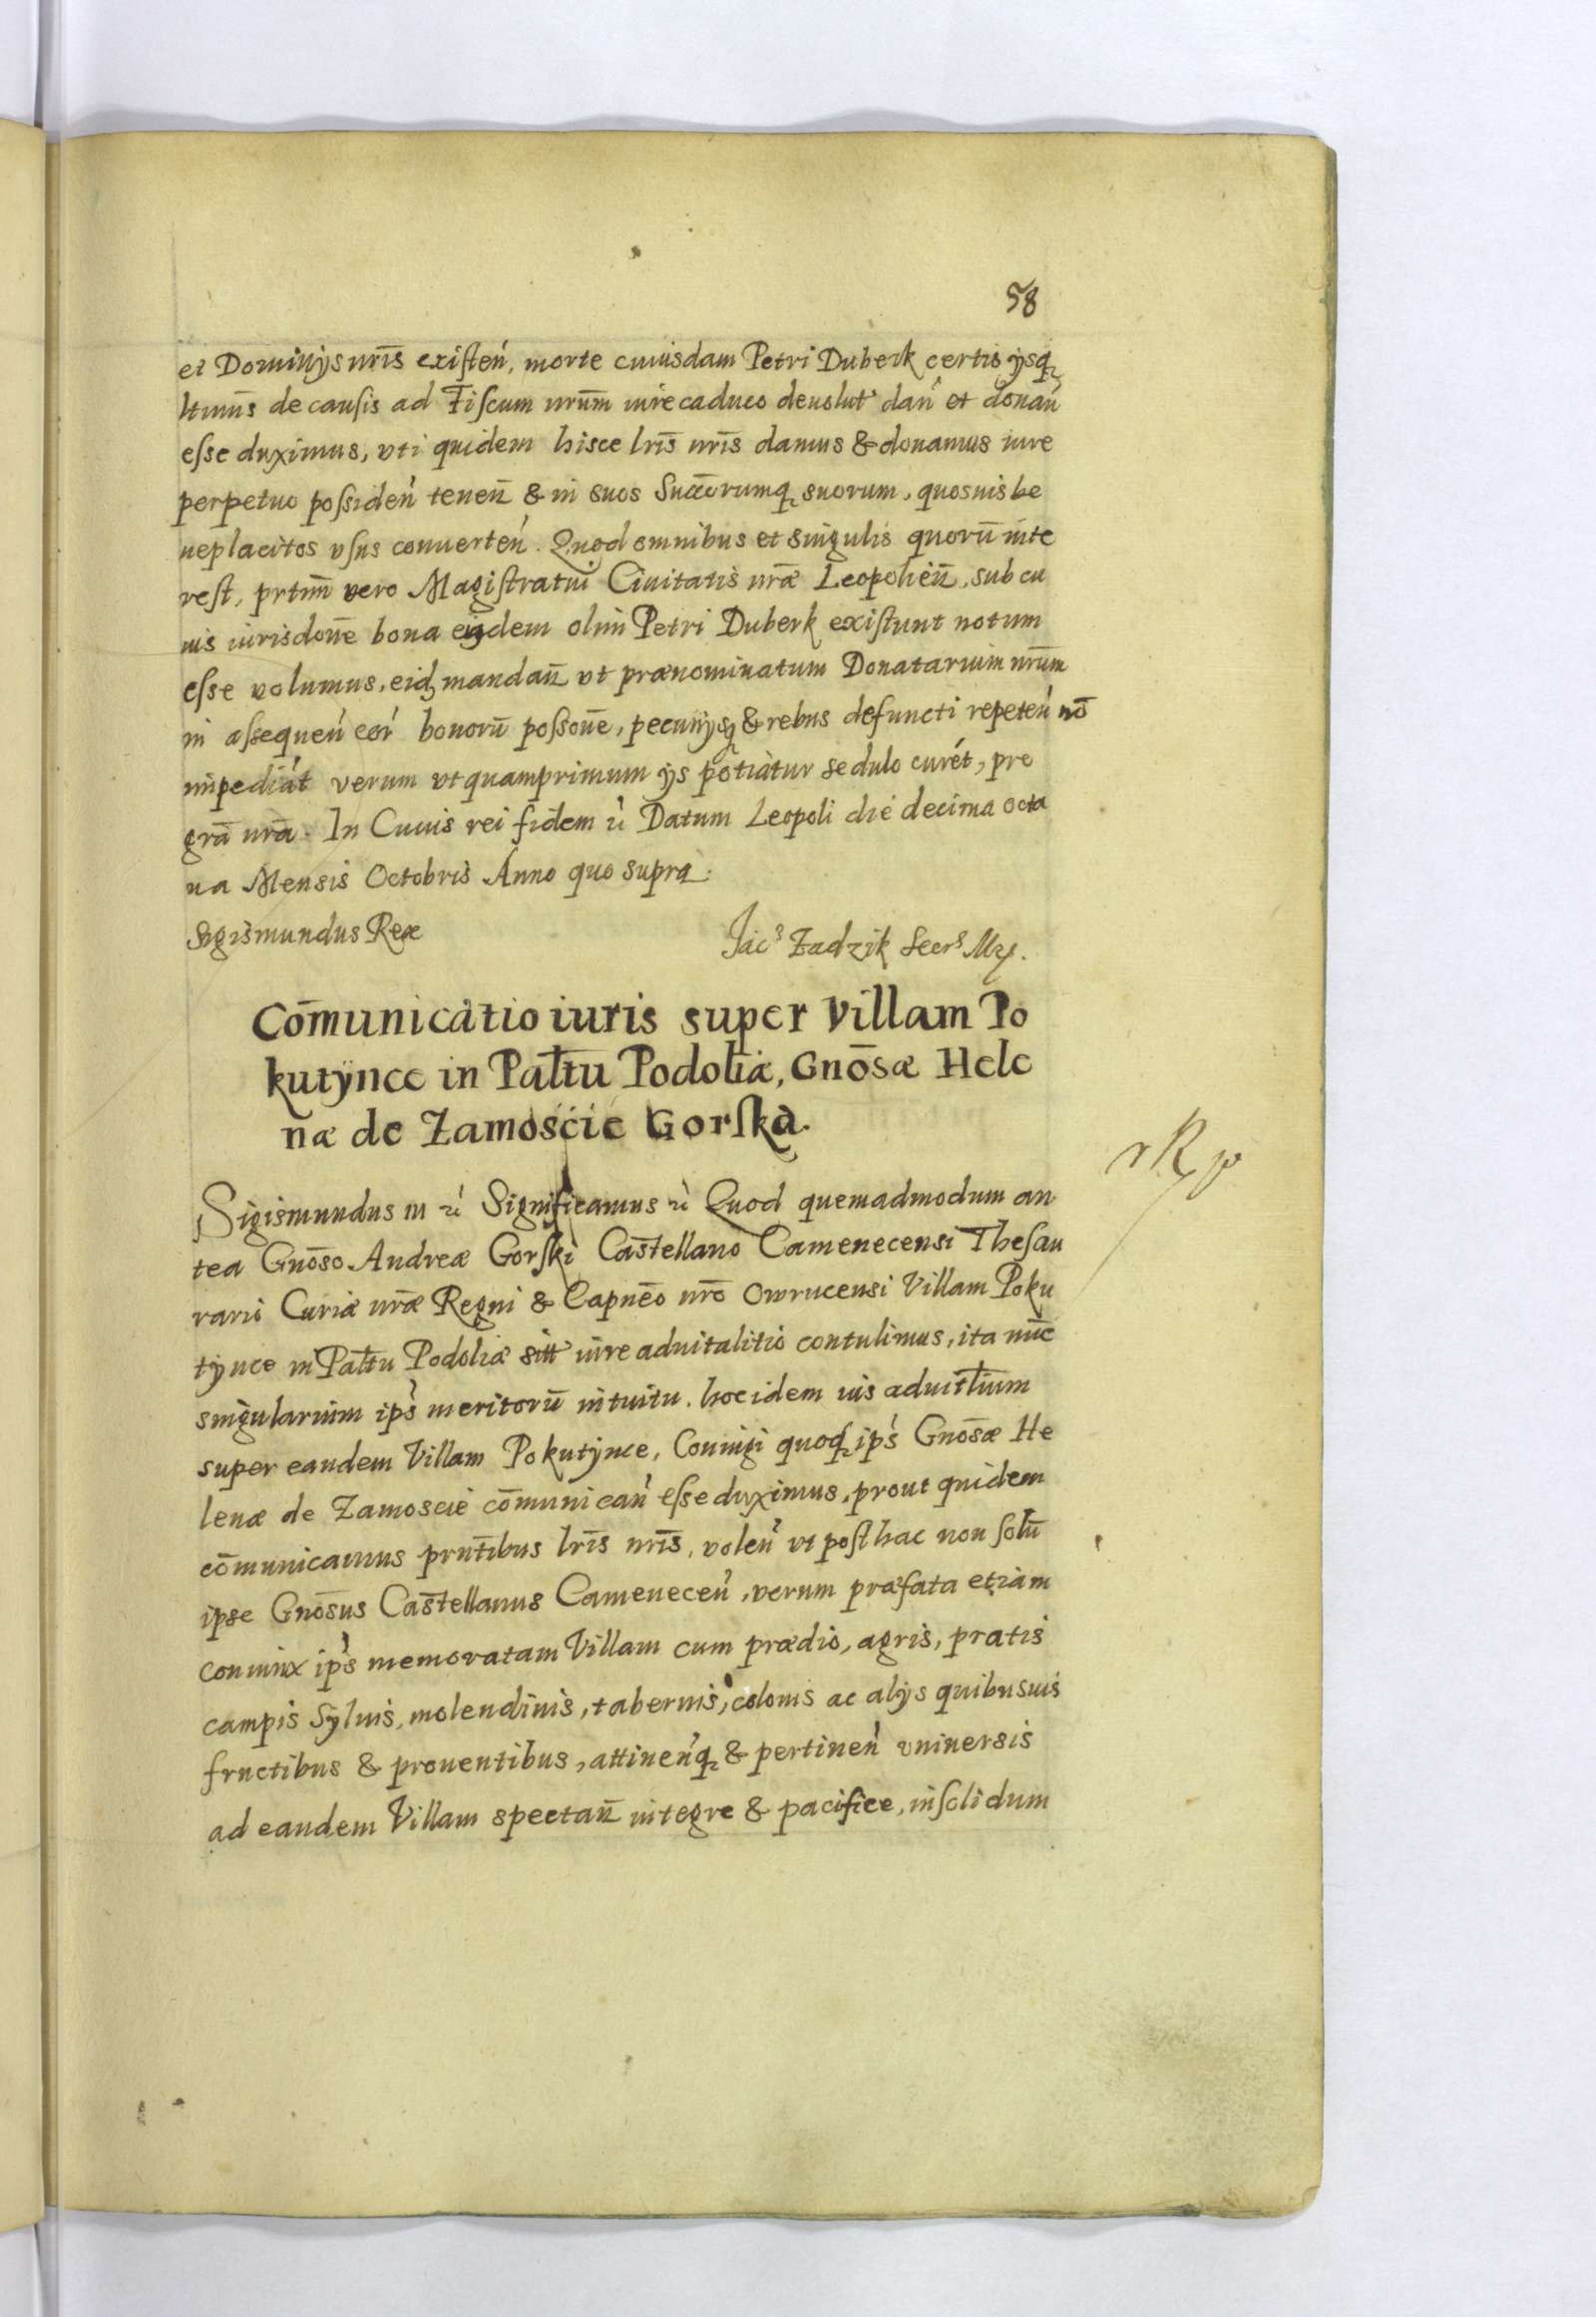 58
et Dominijs nr̄is existen̄, morte cuiusdam Petri Duberk certis ijsq̨
ltimis̄ de causis ad Fiscum nr̄um iure caduco deuolut' dan̄ et donan̄
esse duximus, vti quidem hisce lr̄is nr̄is damus & donamus iure
perpetuo possiden̄ tenen̄ & in suos Succ̄orumq̨ suorum, quosuis be
neplacitos vsus conuerten̄. Quod omnibus et singulis quorū inte
rest, prtim̄ vero Magistratui Ciuitatis nr̄æ Leopolien̄, sub cu
ius iurisdōne bona eijdem olim Petri Duberk existunt notum
esse volumus, eidq̨ mandan̄ vt prænominatum Donatarium nr̄um
in assequen̄ eor' bonorū possōne, pecunijsq̨ & rebus defuncti repeten̄ nō
impediat verum vt quamprimum ijs potiatur sedulo curet, pro
gr̄a nr̄a. In Cuius rei fidem &c̓ Datum Leopoli die decima octa
ua Mensis Octobris Anno quo supra.
Sigismundus Rex Jac⁹ Zadzik Secr⁹ Mp.
Cōmunicatio iuris super Villam Po
kutÿnce in Pal̄tu Podoliæ, Gnōsæ Hele
næ de Zamoście Gorſka.
rKp
Sigismundus III &c̓ Significamus &c̓ Quod quemadmodum an
tea Gnōso Andreæ Gorſki Castellano Camenecensi Thesau
rario Curiæ nr̄æ Regni & Capnēo nr̄o Owrucensi Villam Poku
tÿnce in Pal̄tu Podoliæ sitt' iure aduitalitio contulimus, ita nūc
singularium ips̓ meritorū intuitu, hoc idem ius aduitl̄ium
super eandem Villam Pokutÿnce, Coniugi quoq̨ ips̓ Gnōsæ He
lenæ de Zamoscie cōmunican̄ esse duximus, prout quidem
cōmunicamus prnt̄ibus lr̄is nr̄is, volen̄ vt posthac non solū
ipse Gnōsus Castellanus Camenecen̄, verum præfata etiam
coniunx ips̓ memoratam Villam cum prædio, agris, pratis
campis Syluis, molendinis, tabernis, colonis ac alijs quibusuis
fructibus & prouentibus, attinen̄q̨ & pertinen̄ vniuersis
ad eandem Villam spectan̄ integre & pacifice, insolidum